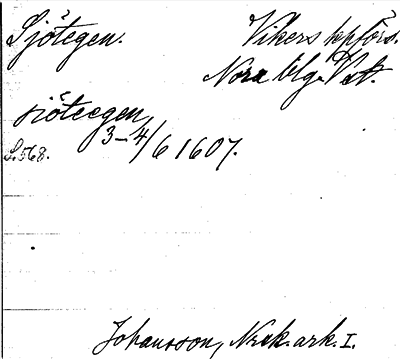 Sjötegen. Vikers kpförs.
Nora blg. Vstl.
siöteegen
3–4/6 1607.
S. 568.
Johansson, Nork. ark. I.